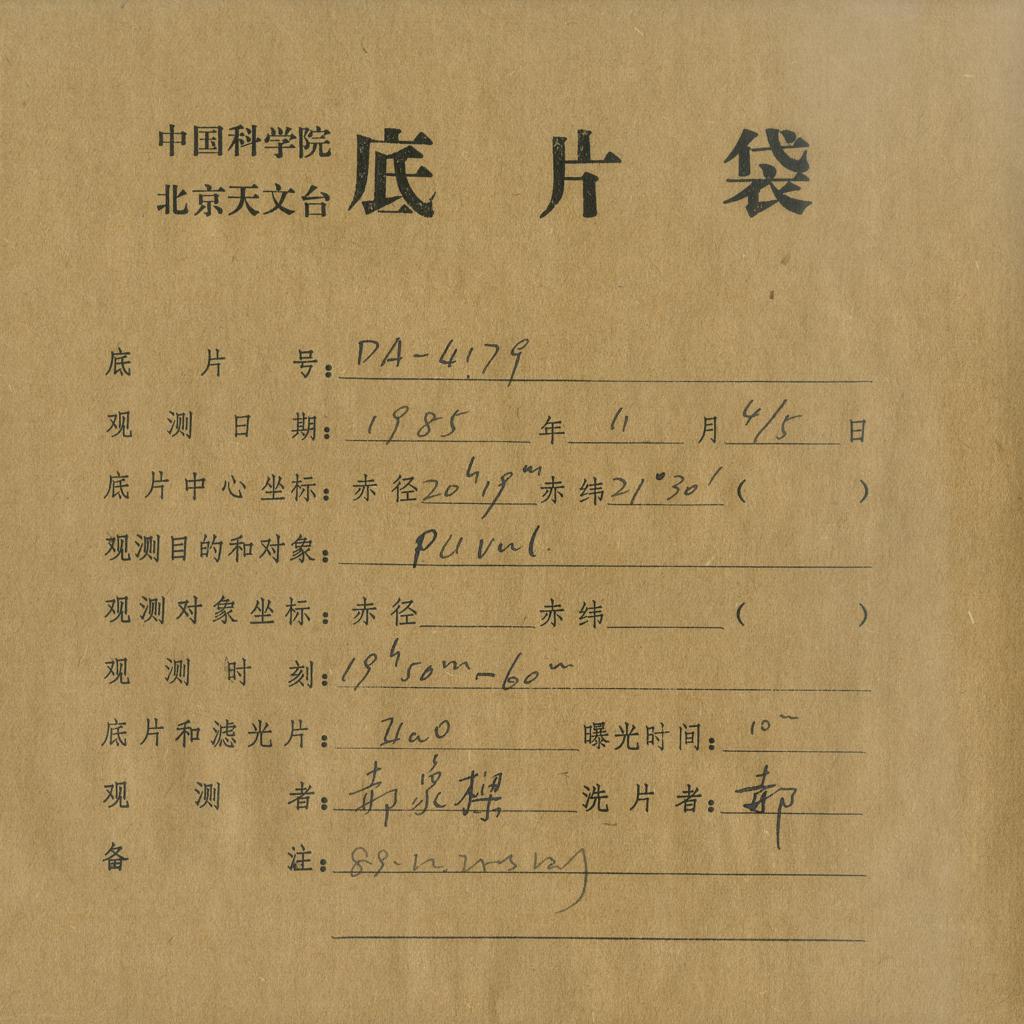 中国科学院
北京天文台 底片袋
底片号: DA-4179
观测日期: 1985 年 11 月 4/5 日
底片中心坐标: 赤径 20h19m 赤纬 21°30′ ( )
观测目的和对象: PU vul.
观测对象坐标: 赤径 赤纬 ( )
观测时刻: 19h50m-60m
底片和滤光片: IIaO 曝光时间: 10m
观测者: 郝象樑 洗片者: 郝
备注: 89.12.